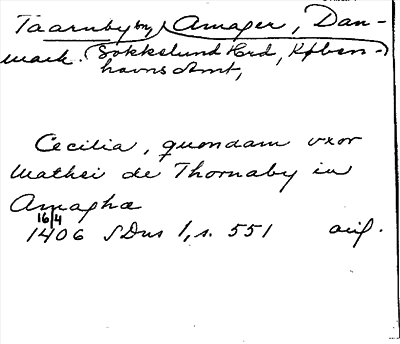 Taarnby by, Amager, Dan-
mark. (Sokkelund Hrd, Køben-)
havns Amt,
Cecilia, quondam vxor
Mathei de Thornaby in
Amaghæ
16/4
1406 SDns 1, s. 551